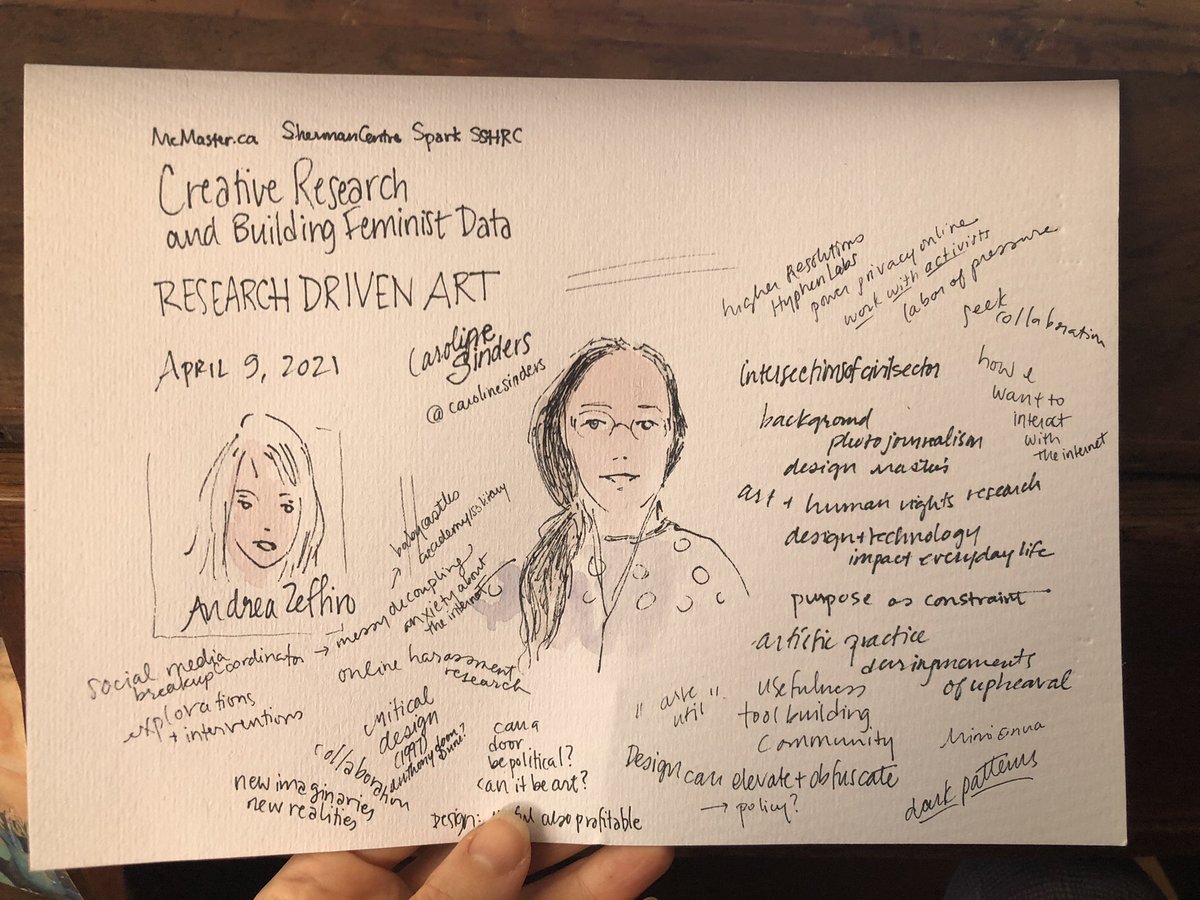 McMaster.ca ShermanCentre Spark SSHRC
Creative Research
and Building Feminist Data
RESEARCH DRIVEN ART
APRIL 9, 2021
Caroline
Sinders
@carolinesinders
Andrea Zeffiro
social media
breakup coordinator
→ messy decoupling
anxiety about
the internet
→ babycastles
academy/SS library
explorations
+ interventions
online harassment
research
critical
design
(1997)
collaboration
new imaginaries
new realities
can a
door
be political?
can it be art?
Design: also profitable
higher Resolutions
Hyphen Labs
power privacy online
work with activists
labor of pressure
seek
collaboration
how I
want to
interact
with
the internet
intersections of civil sector
background
photojournalism
design masters
art + human rights research
design + technology
impact everyday life
purpose as constraint
artistic practice
during moments
of upheaval
"arte
util"
usefulness
tool building
community
Design can elevate + obfuscate
→ policy?
dark patterns